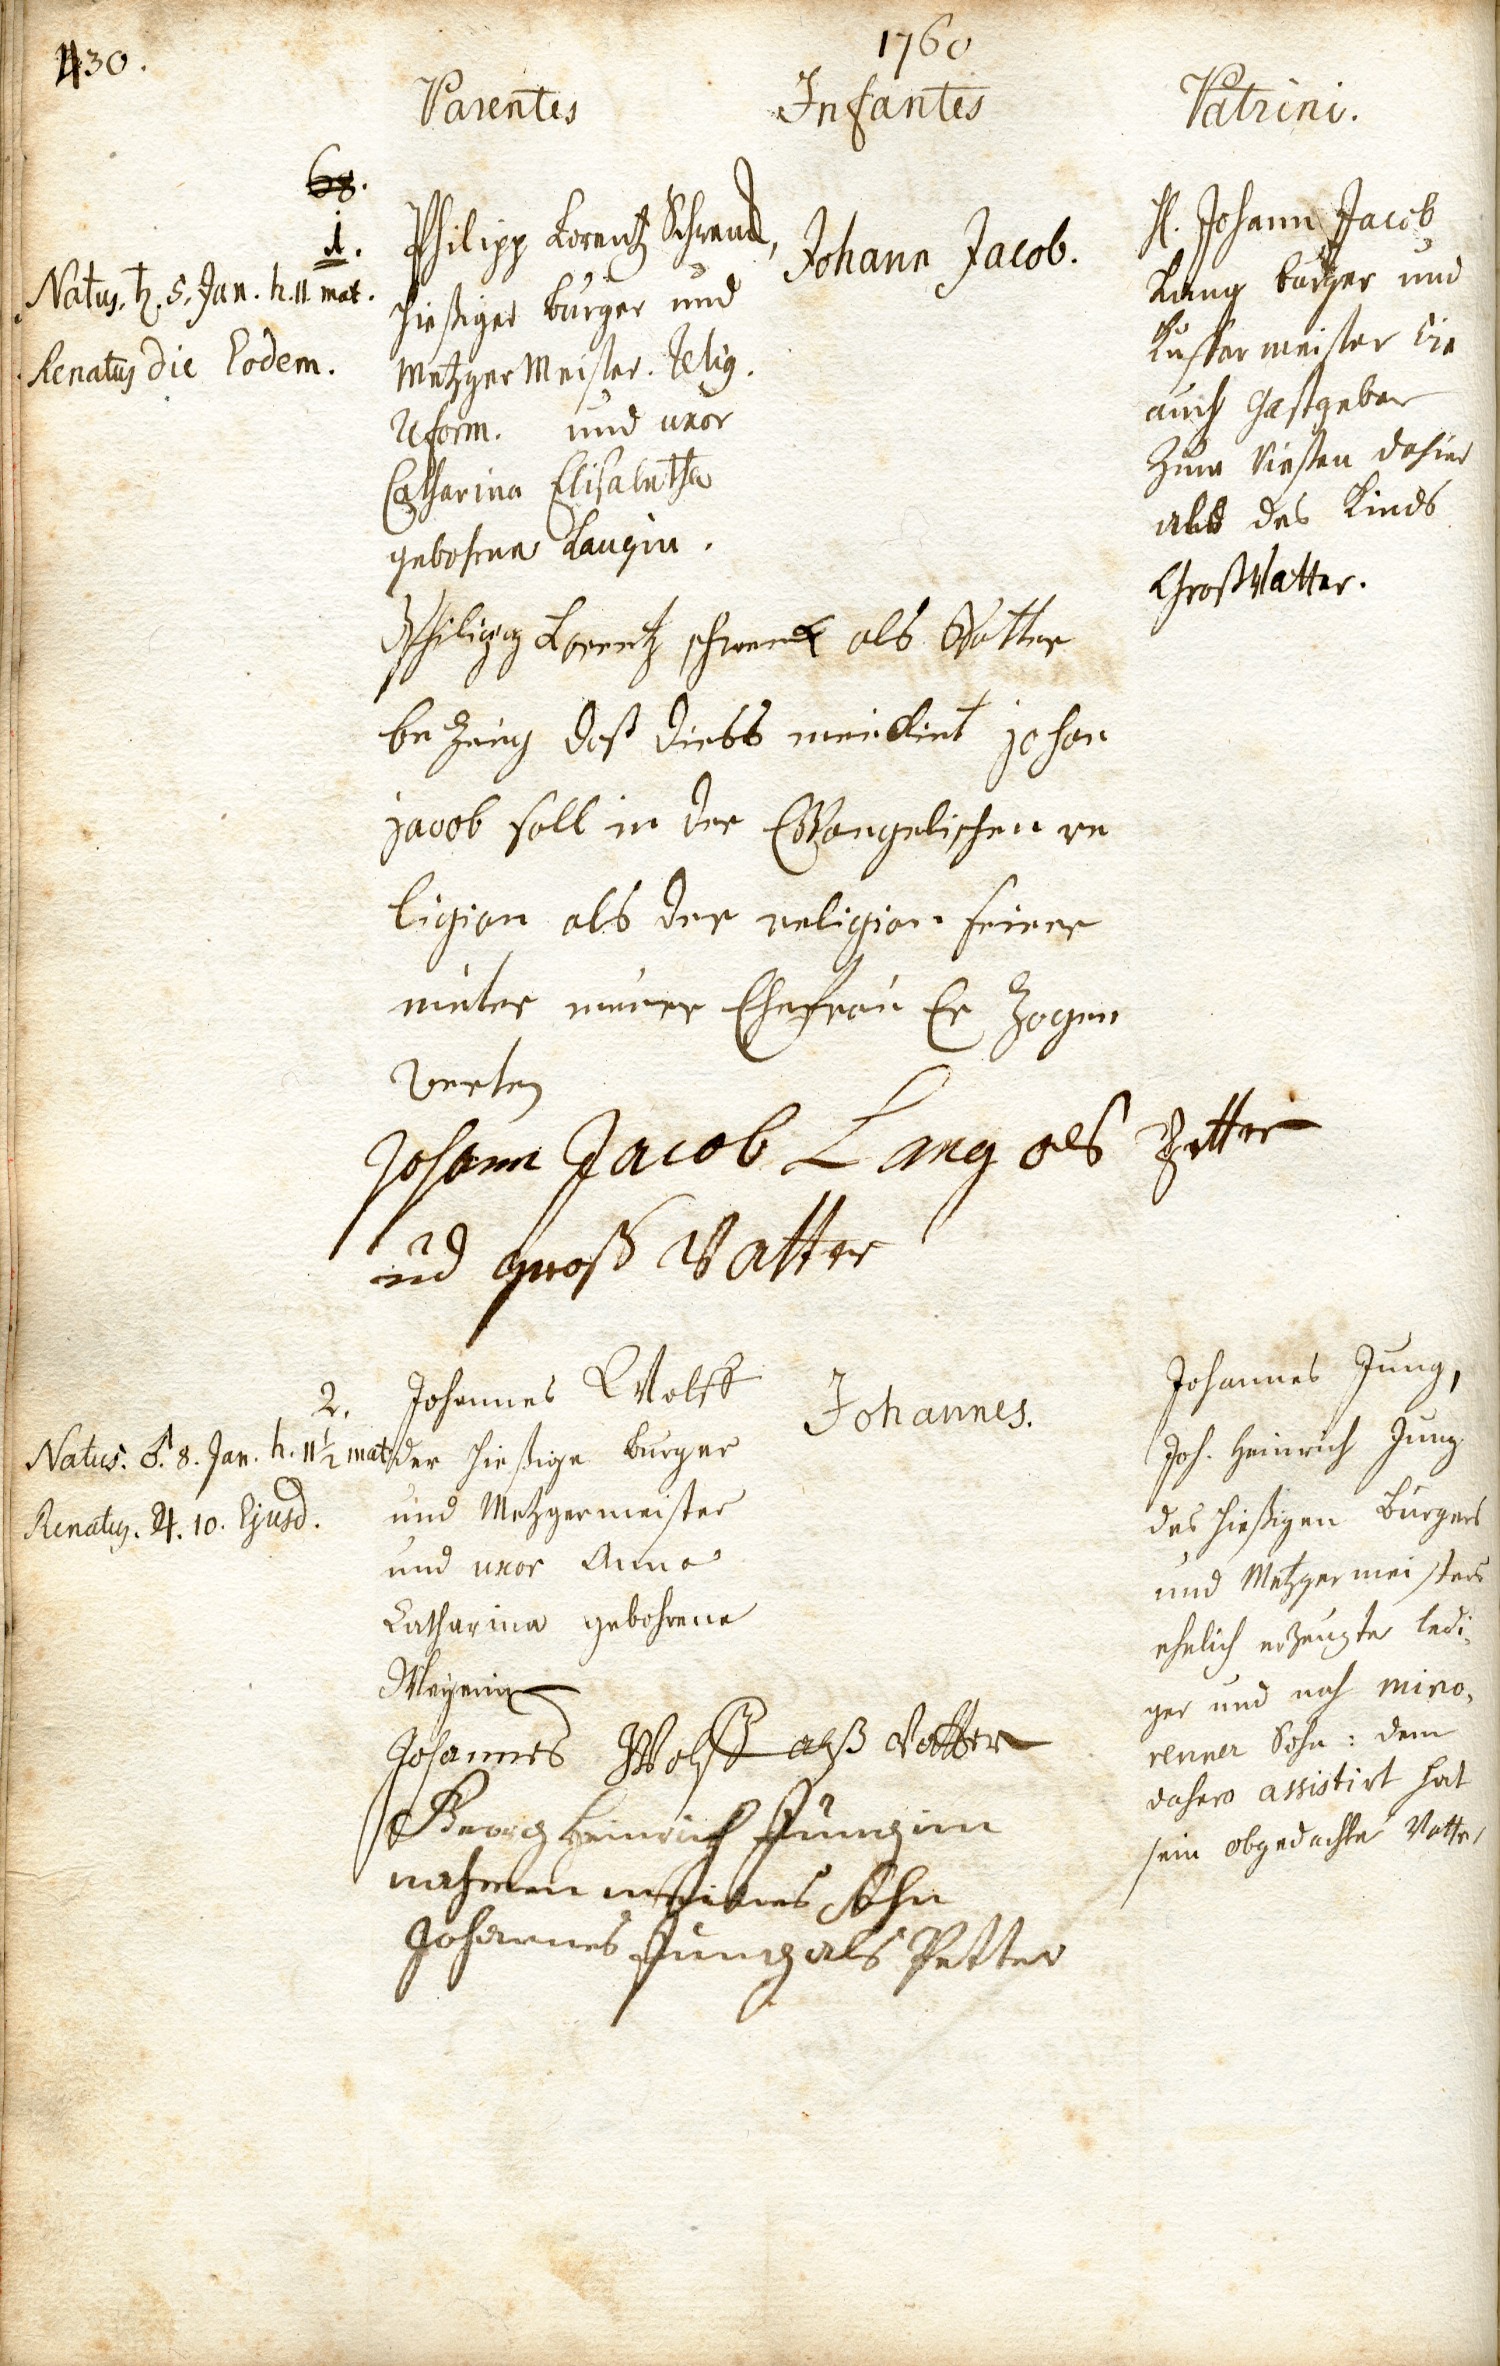 430.
1760
Parentes Infantes Patrini.
68.
1.
Natus. ♄. 5. Jan. h. 11 mat.
Renatus die Eodem.
Philipp Lorentz Schwenck,
hießiger burger und
Metzger Meister. Relig.
Reform. und uxor
Catharina Elisabetha
gebohrne Langin.
Johann Jacob.
H. Johann Jacob
Lang burger und
Kuffermeister wie
auch Gastgeber
Zum Riesen dahier
alß des Kinds
GroßVatter.
Philipp Lorentz schwenck als Vatter
be Zeüg daß diess mein Kint johan
jacob soll in der Evangelischen re
ligion als der religion seiner
muter meiner Ehefrau Er Zogen
werten
Johann Jacob Lang als Petter
und groß Vatter
2.
Natus. ♂. 8. Jan. h. 11 1/2 mat
Renatus. ♃. 10. Ejusd.
Johannes Wolff
der hießige burger
und Metzgermeister
und uxor Anna
Catharina gebohrene
Meyerin
Johannes.
Johannes Jung,
Joh. Heinrich Jung
des hießigen Burgers
und Metzgermeisters
ehelich erzeugter ledi,
ger und noch mino,
renner Sohn: dem
dahero assistirt hat
sein obgedachter Vatter
Johannes Wolff alß Vatter
Georg Heinrich Jung im
nahmen meines sohn
Johannes Jung als Petter